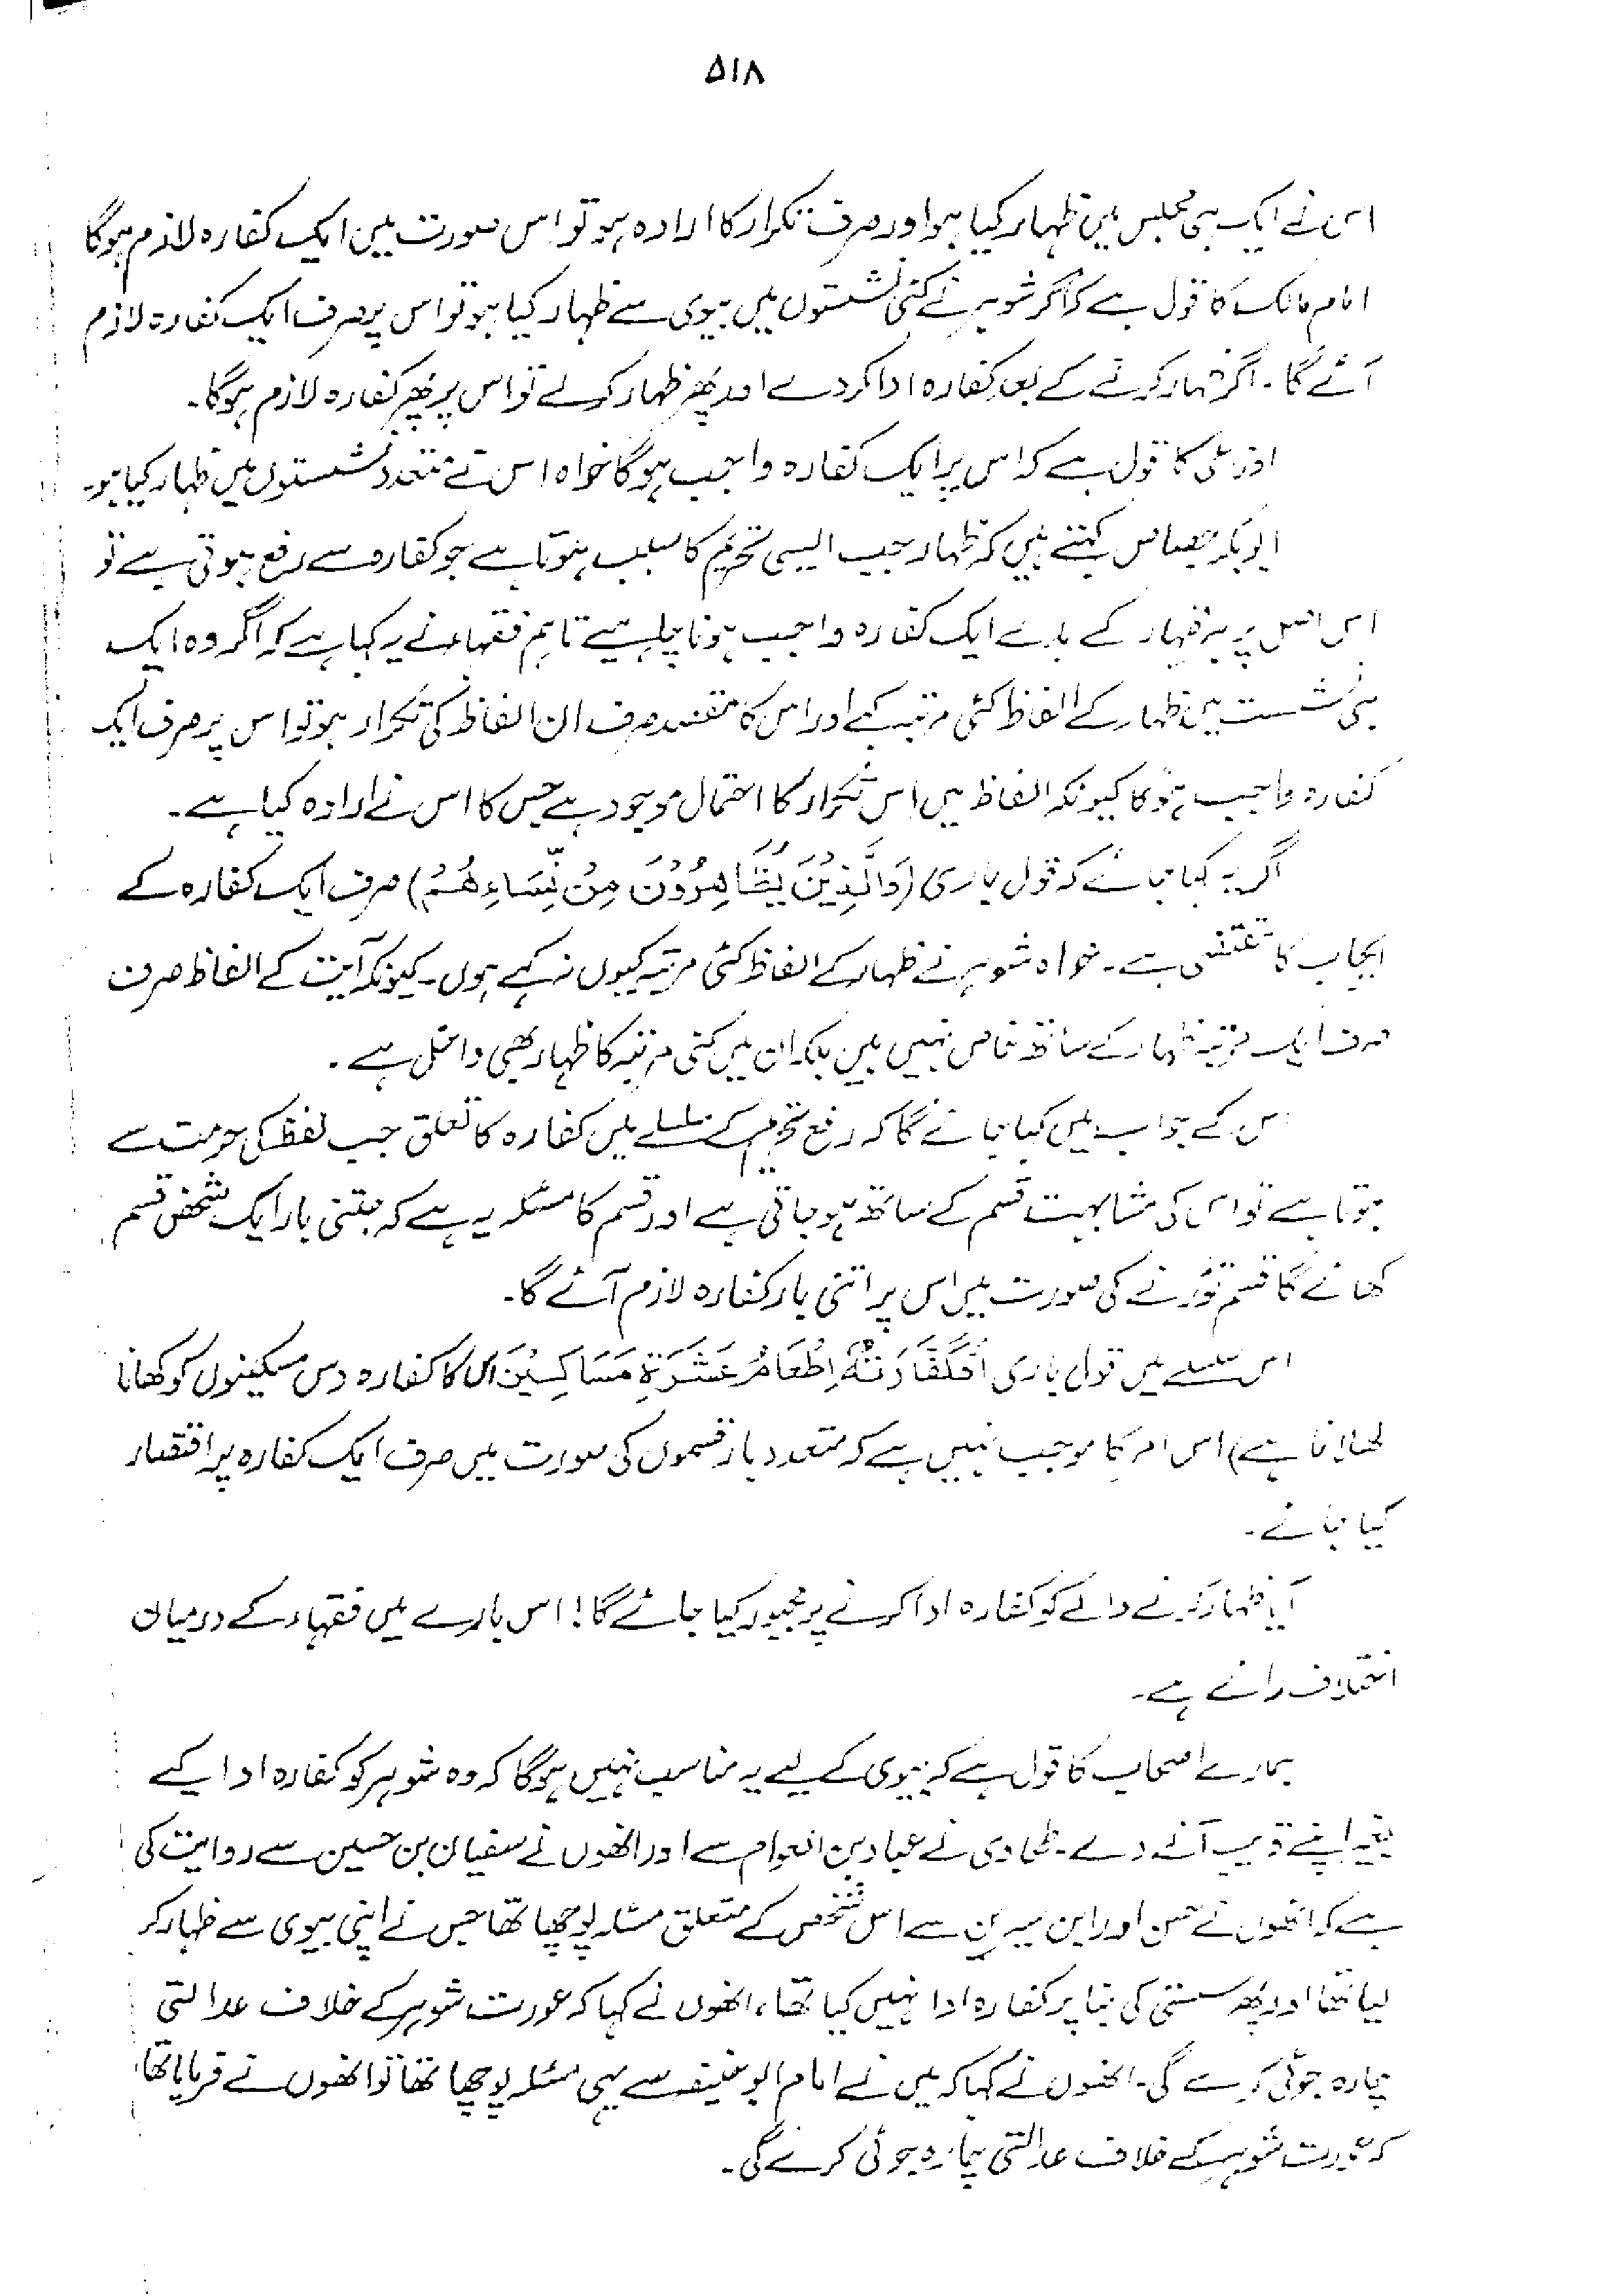 ۵۱۸
اس نے ایک ہی مجلس میں ظہار کیا ہو اور صرف تکرار کا ارادہ ہو تو اس صورت میں ایک کفارہ لازم ہوگا
امام مالک کا قول ہے کہ اگر شوہر نے کئی نشستوں میں بیوی سے ظہار کیا ہو تو اس پر صرف ایک کفارہ لازم
آئے گا۔ اگر ظہار کرنے کے بعد کفارہ ادا کر دے اور پھر ظہار کرلے تو اس پر پھر کفارہ لازم ہوگا۔
اوزاعی کا قول ہے کہ اس پر ایک کفارہ واجب ہوگا خواہ اس نے متعدد نشستوں میں ظہار کیا ہو۔
ابوبکر جصاص کہتے ہیں کہ ظہار جب ایسی تحریم کا سبب ہوتا ہے جو کفارہ سے رفع ہوتی ہے تو
اس اصل پر ہر ظہار کے بدلے ایک کفارہ واجب ہونا چاہیے تاہم فقہاء نے یہ کہا ہے کہ اگر وہ ایک
ہی نشست میں ظہار کے الفاظ کئی مرتبہ کہے اور اس کا مقصد صرف ان الفاظ کی تکرار ہو تو اس پر صرف ایک
کفارہ واجب ہوگا کیونکہ الفاظ میں اس تکرار کا احتمال موجود ہے جس کا اس نے ارادہ کیا ہے۔
اگر یہ کہا جائے کہ قول باری (وَالَّذِیْنَ یُظَاہِرُوْنَ مِنْ نِّسَاءِھِمْ) صرف ایک کفارہ کے
ایجاب کا مقتضی ہے۔ خواہ شوہر نے ظہار کے الفاظ کئی مرتبہ کیوں نہ کہے ہوں۔ کیونکہ آیت کے الفاظ صرف
صرف ایک مرتبہ ظہار کے ساتھ خاص نہیں ہیں بلکہ ان میں کئی مرتبہ کا ظہار بھی داخل ہے۔
اس کے جواب میں کہا جائے گا کہ رفع تحریم کے سلسلے میں کفارہ کا تعلق جب لفظ کی حرمت سے
ہوتا ہے تو اس کی مشابہت قسم کے ساتھ ہو جاتی ہے اور قسم کا مسئلہ یہ ہے کہ جتنی بار ایک شخص قسم
کھائے گا قسم توڑنے کی صورت میں اس پر اتنی بار کفارہ لازم آئے گا۔
اس سلسلے میں قول باری (فَكَفَّارَتُهٗ اِطْعَامُ عَشَرَةِ مَسَاكِيْنَ اس کا کفارہ دس مسکینوں کو کھانا
کھلانا ہے) اس امر کا موجب نہیں ہے کہ متعدد بار قسموں کی صورت میں صرف ایک کفارہ پر اقتصار
کیا جائے۔
آیا ظہار کرنے والے کو کفارہ ادا کرنے پر مجبور کیا جائے گا! اس بارے میں فقہاء کے درمیان
اختلاف رائے ہے۔
ہمارے اصحاب کا قول ہے کہ بیوی کے لیے یہ مناسب نہیں ہوگا کہ وہ شوہر کو کفارہ ادا کیے
بغیر اپنے قریب آنے دے۔ طحاوی نے عباد بن العوام سے اور انھوں نے سفیان بن حسین سے روایت کی
ہے کہ انھوں نے حسن اور ابن سیرین سے اس شخص کے متعلق مسئلہ پوچھا تھا جس نے اپنی بیوی سے ظہار کر
لیا تھا اور پھر سستی کی بنا پر کفارہ ادا نہیں کیا تھا، انھوں نے کہا کہ عورت شوہر کے خلاف عدالتی
چارہ جوئی کرے گی۔ انھوں نے کہا کہ میں نے امام ابو حنیفہ سے یہی مسئلہ پوچھا تھا تو انھوں نے فرمایا تھا
کہ عورت شوہر کے خلاف عدالتی چارہ جوئی کرے گی۔